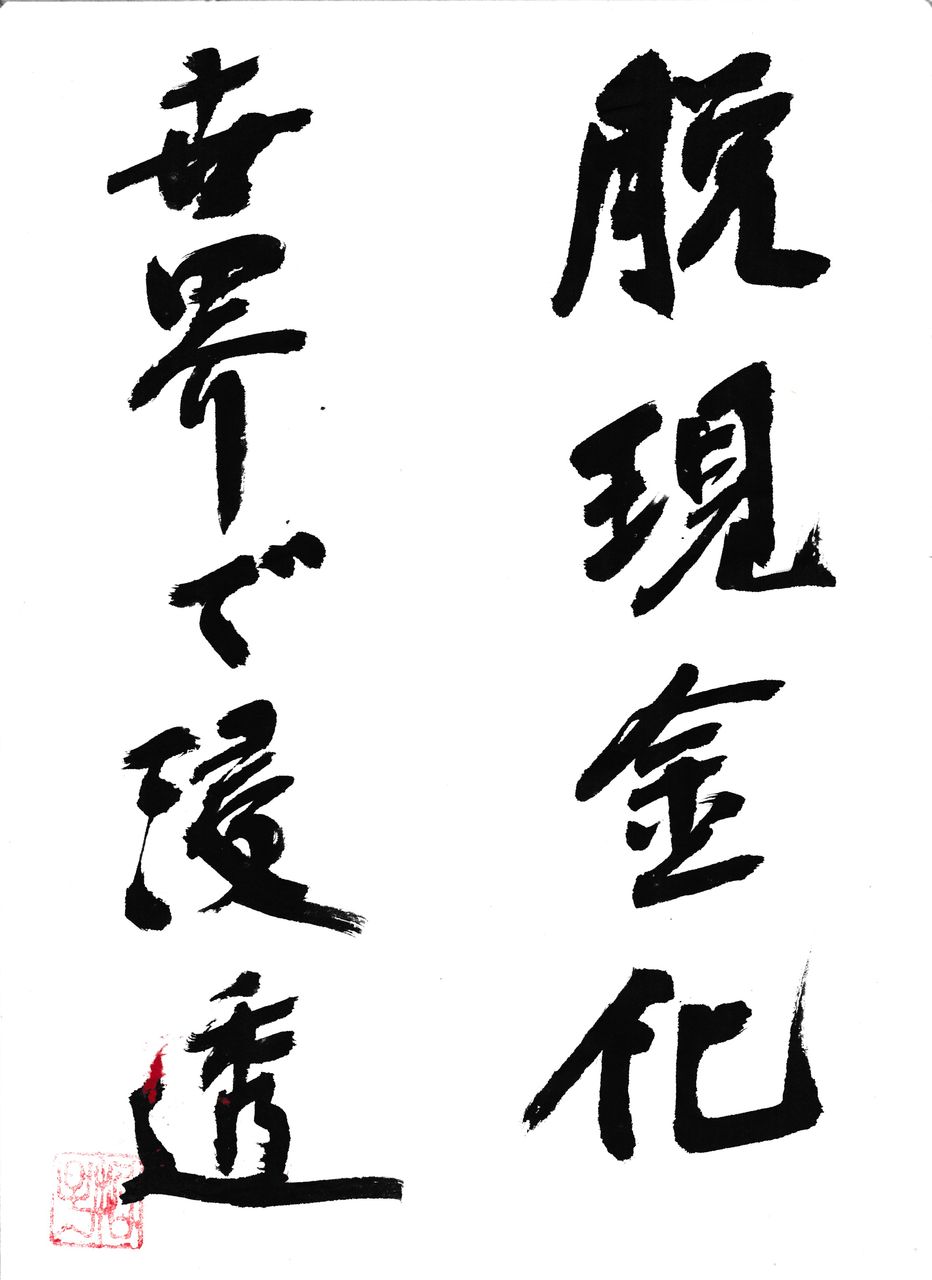 脱現金化
世界で浸透